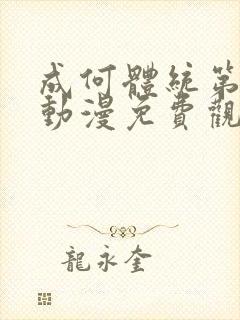 成何體統第
動漫免費觀
龍永奎